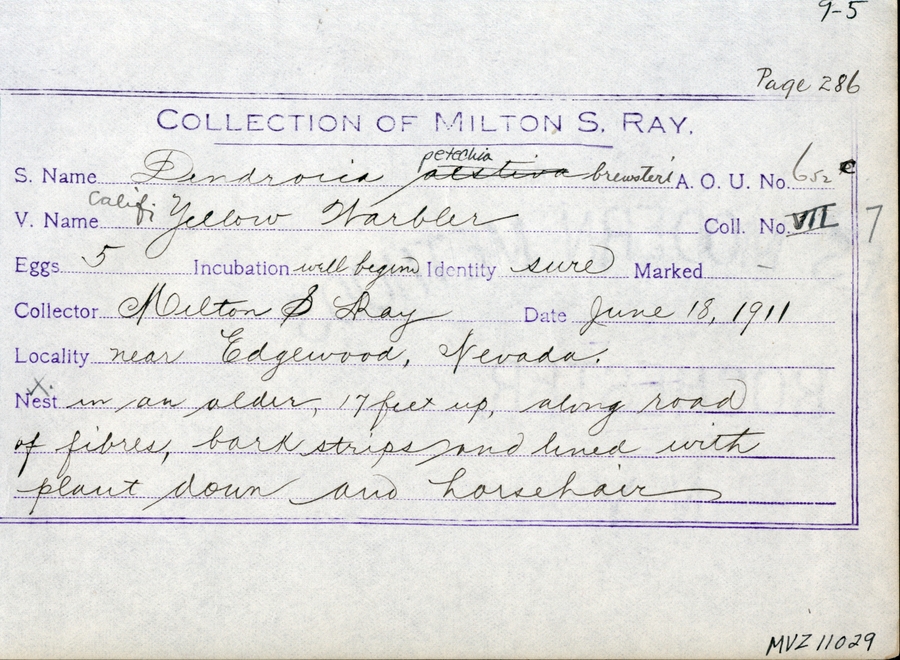 9-5
Page 286
COLLECTION OF MILTON S. RAY.
petechia
S. Name Dendroica aestiva brewsteri A. O. U. No. 652 c
Calif.
V. Name Yellow Warbler Coll. No. VII 7
Eggs 5 Incubation will begin Identity sure Marked –
Collector Milton S Ray Date June 18, 1911
Locality near Edgewood, Nevada.
X
Nest in an alder, 17 feet up, along road
of fibres, bark strips and lined with
plant down and horsehair
MVZ 11029